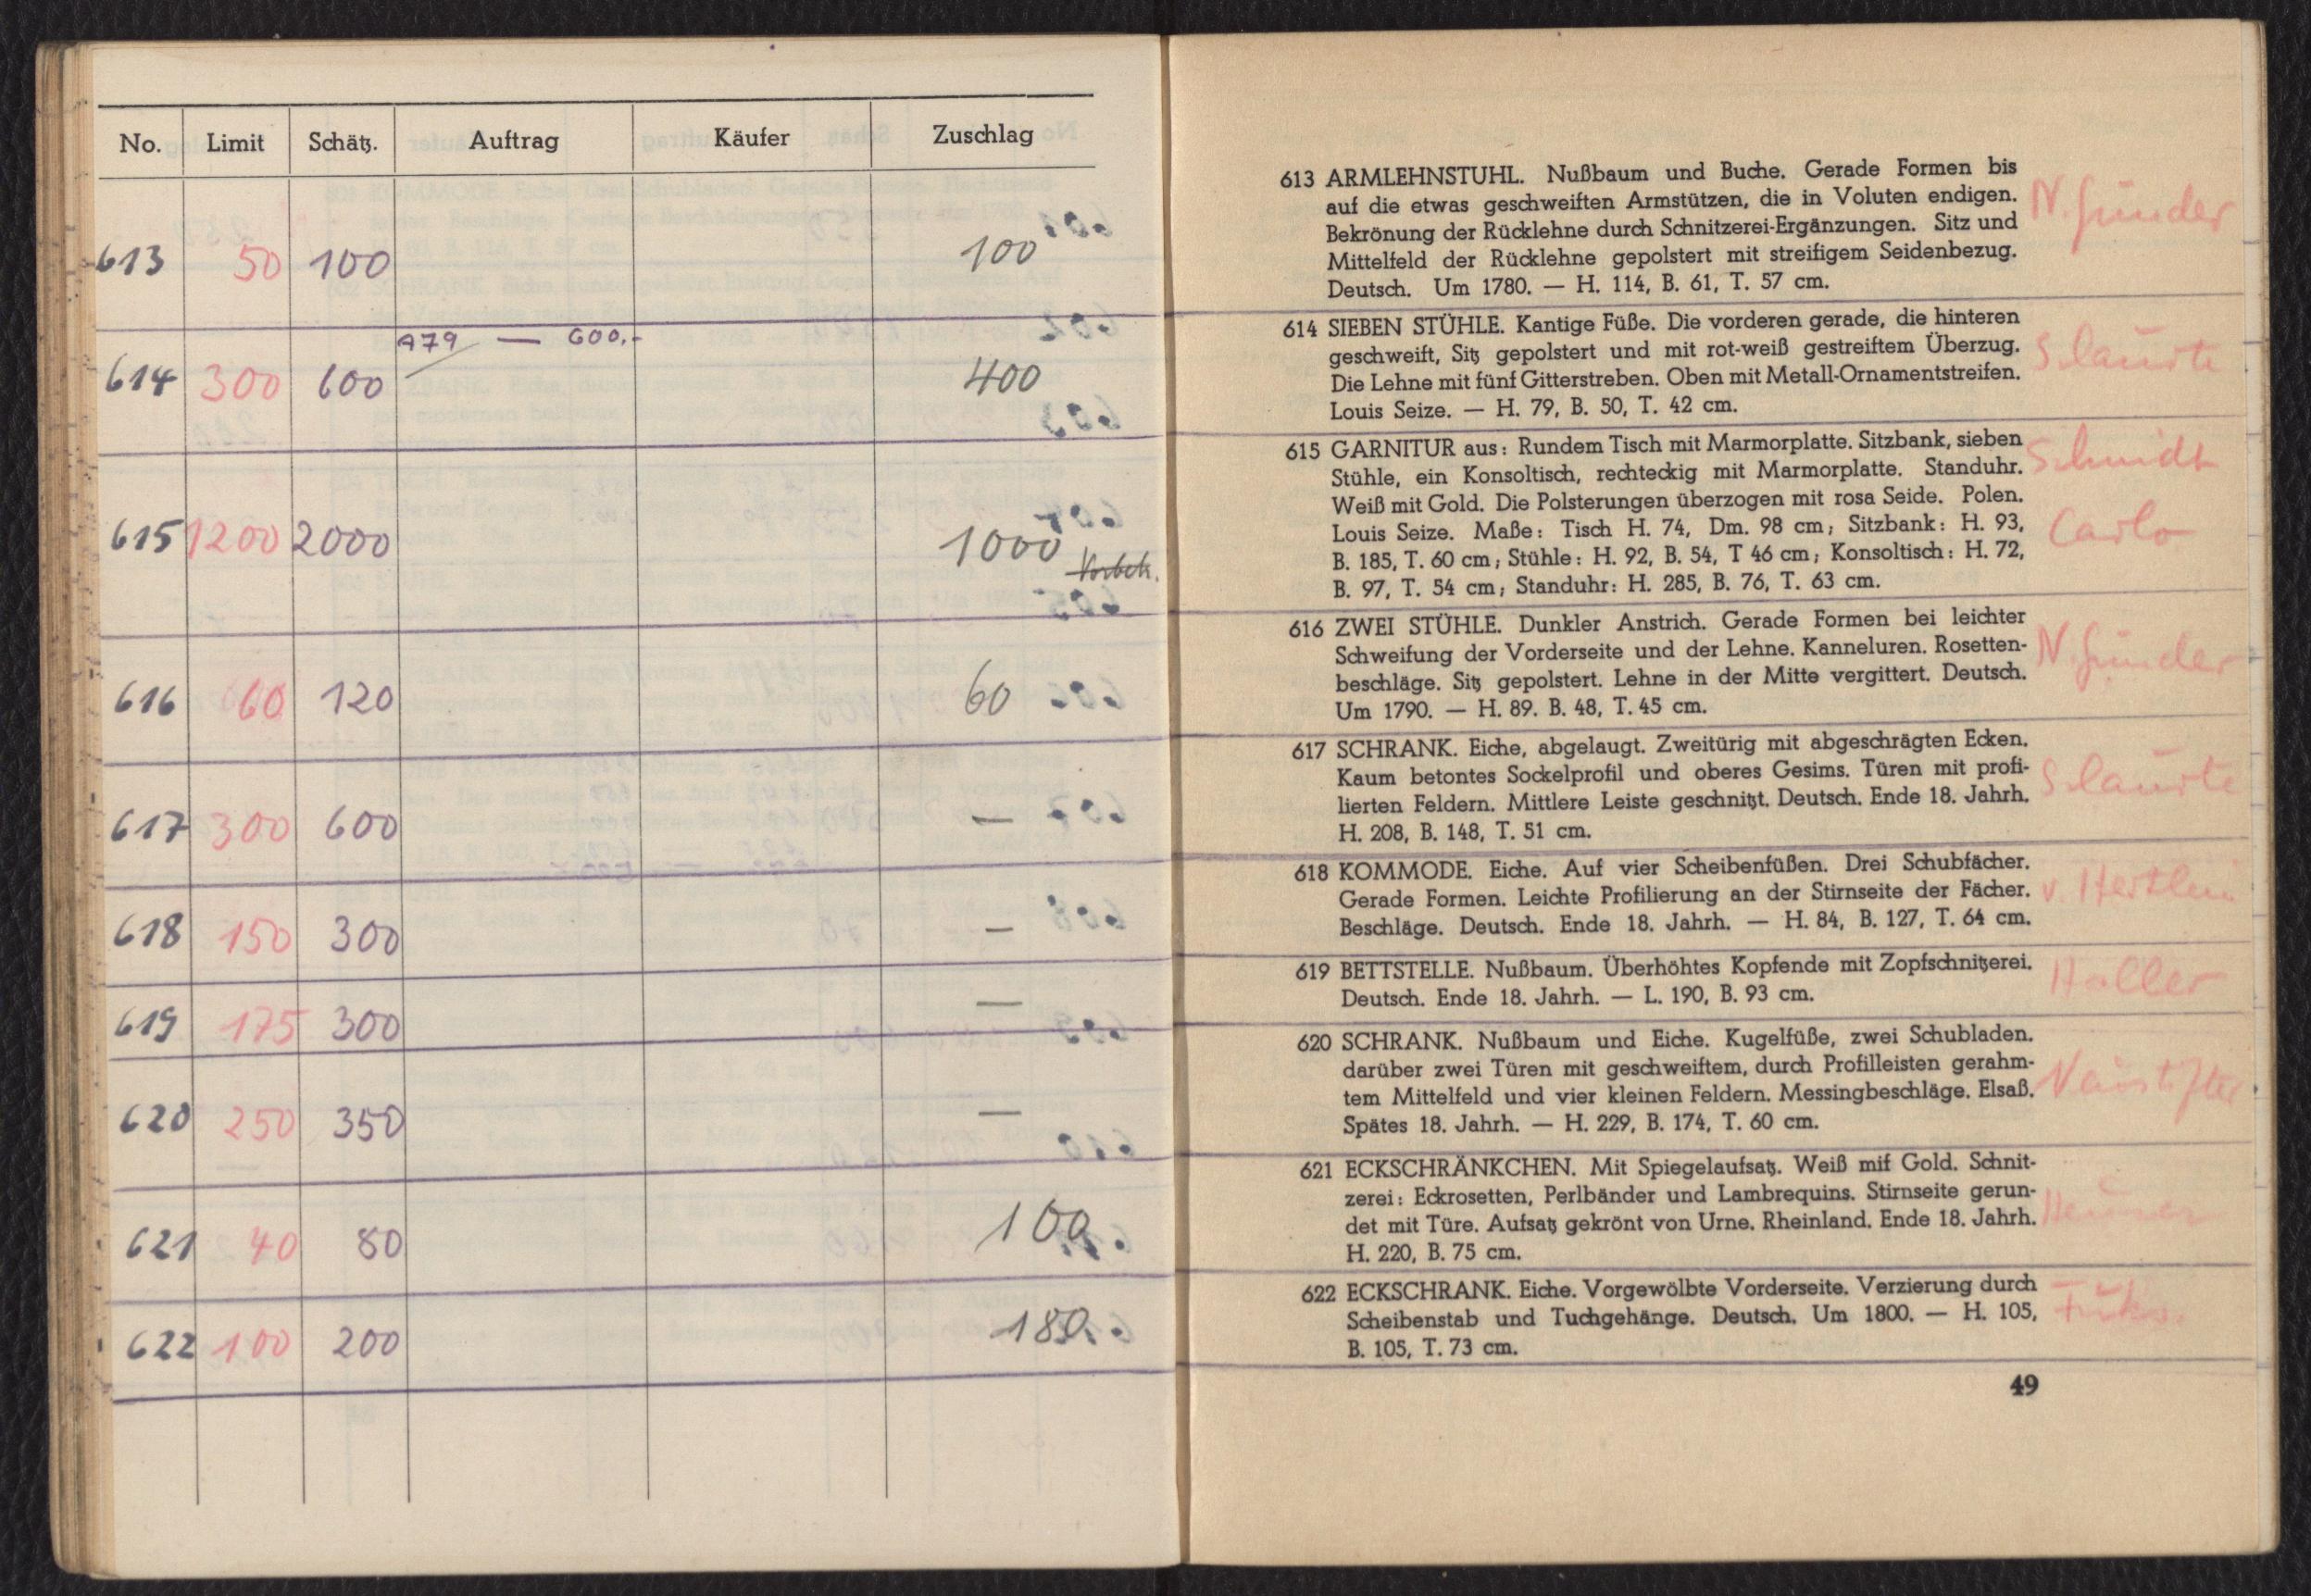 No. Limit Schätz. Auftrag Käufer Zuschlag
613 50 100 100
A79 — 600.-
614 300 600 400
615 1200 2000 1000
Vorbeh.
616 60 120 60
617 300 600 —
618 150 300 —
619 175 300 —
620 250 350 —
621 40 80 100
622 100 200 180
613 ARMLEHNSTUHL. Nußbaum und Buche. Gerade Formen bis
auf die etwas geschweiften Armstützen, die in Voluten endigen.
Bekrönung der Rücklehne durch Schnitzerei-Ergänzungen. Sitz und
Mittelfeld der Rücklehne gepolstert mit streifigem Seidenbezug.
Deutsch. Um 1780. — H. 114, B. 61, T. 57 cm.
N. Günder
614 SIEBEN STÜHLE. Kantige Füße. Die vorderen gerade, die hinteren
geschweift, Sitz gepolstert und mit rot-weiß gestreiftem Überzug.
Die Lehne mit fünf Gitterstreben. Oben mit Metall-Ornamentstreifen.
Louis Seize. — H. 79, B. 50, T. 42 cm.
615 GARNITUR aus: Rundem Tisch mit Marmorplatte. Sitzbank, sieben
Stühle, ein Konsoltisch, rechteckig mit Marmorplatte. Standuhr.
Weiß mit Gold. Die Polsterungen überzogen mit rosa Seide. Polen.
Louis Seize. Maße: Tisch H. 74, Dm. 98 cm; Sitzbank: H. 93,
B. 185, T. 60 cm; Stühle: H. 92, B. 54, T 46 cm; Konsoltisch: H. 72,
B. 97, T. 54 cm; Standuhr: H. 285, B. 76, T. 63 cm.
Schmidt
Carlo
616 ZWEI STÜHLE. Dunkler Anstrich. Gerade Formen bei leichter
Schweifung der Vorderseite und der Lehne. Kanneluren. Rosetten-
beschläge. Sitz gepolstert. Lehne in der Mitte vergittert. Deutsch.
Um 1790. — H. 89. B. 48, T. 45 cm.
N. Günder
617 SCHRANK. Eiche, abgelaugt. Zweitürig mit abgeschrägten Ecken.
Kaum betontes Sockelprofil und oberes Gesims. Türen mit profi-
lierten Feldern. Mittlere Leiste geschnitzt. Deutsch. Ende 18. Jahrh.
H. 208, B. 148, T. 51 cm.
618 KOMMODE. Eiche. Auf vier Scheibenfüßen. Drei Schubfächer.
Gerade Formen. Leichte Profilierung an der Stirnseite der Fächer.
Beschläge. Deutsch. Ende 18. Jahrh. — H. 84, B. 127, T. 64 cm.
v. Hertlein
619 BETTSTELLE. Nußbaum. Überhöhtes Kopfende mit Zopfschnitzerei.
Deutsch. Ende 18. Jahrh. — L. 190, B. 93 cm.
Haller
620 SCHRANK. Nußbaum und Eiche. Kugelfüße, zwei Schubladen.
darüber zwei Türen mit geschweiftem, durch Profilleisten gerahm-
tem Mittelfeld und vier kleinen Feldern. Messingbeschläge. Elsaß.
Spätes 18. Jahrh. — H. 229, B. 174, T. 60 cm.
621 ECKSCHRÄNKCHEN. Mit Spiegelaufsatz. Weiß mif Gold. Schnit-
zerei: Eckrosetten, Perlbänder und Lambrequins. Stirnseite gerun-
det mit Türe. Aufsatz gekrönt von Urne. Rheinland. Ende 18. Jahrh.
H. 220, B. 75 cm.
622 ECKSCHRANK. Eiche. Vorgewölbte Vorderseite. Verzierung durch
Scheibenstab und Tuchgehänge. Deutsch. Um 1800. — H. 105,
B. 105, T. 73 cm.
49